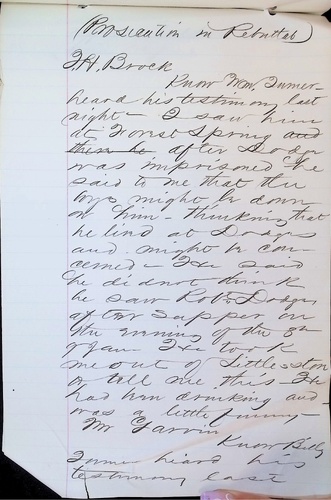 (Prosecution in Rebuttal)
J. H. Brock
Know Wm. Turner
heard his testimony last
night — I saw him
at Spring and
then he after Dodge
was imprisoned he
said to me that the
boys might be down
on him — thinking that
he lived at Dodges
and might be con-
cerned — He said
he did not think
he saw Robt. Dodge
after supper on
the evening of the
of Jan He took
me out of
to tell me this — He
had been drinking and
was a little funny —
Mr Garvin
Know Billy
Turner heard his
testimony last